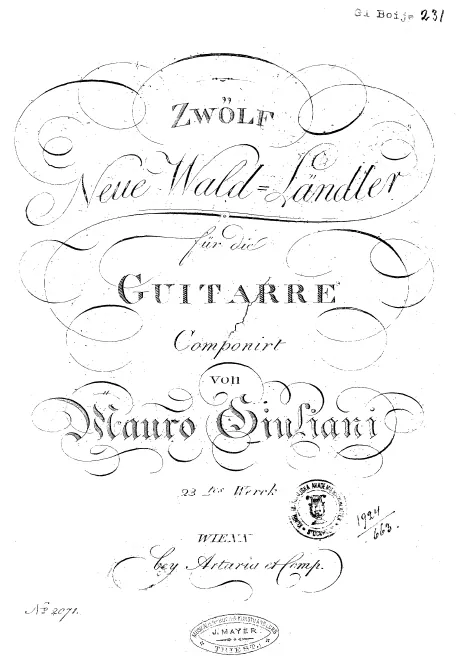 Gd Boije 231
ZWÖLF
Neue Wald=Ländler
für die
GUITARRE
Componirt
von
Mauro Giuliani
23tes Werck
1924/663.
WIENN
bey Artaria et Comp.
No 2071.
J. MAYER
TRIEST